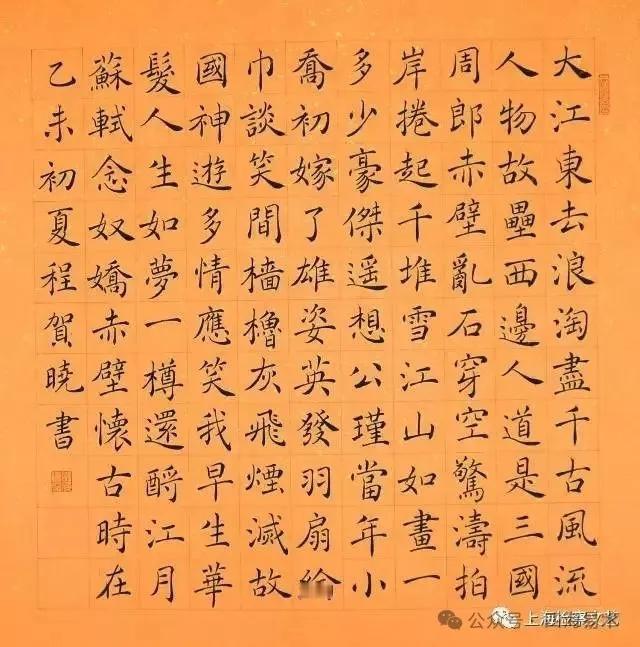 大江東去浪淘盡千古風流
人物故壘西邊人道是三國
周郎赤壁亂石穿空驚濤拍
岸捲起千堆雪江山如畫一
多少豪傑遥想公瑾當年小
喬初嫁了雄姿英發羽扇綸
巾談笑間檣櫓灰飛煙滅故
國神遊多情應笑我早生華
髮人生如夢一樽還酹江月
蘇軾念奴嬌赤壁懷古時在
乙未初夏程賀曉書
公众号